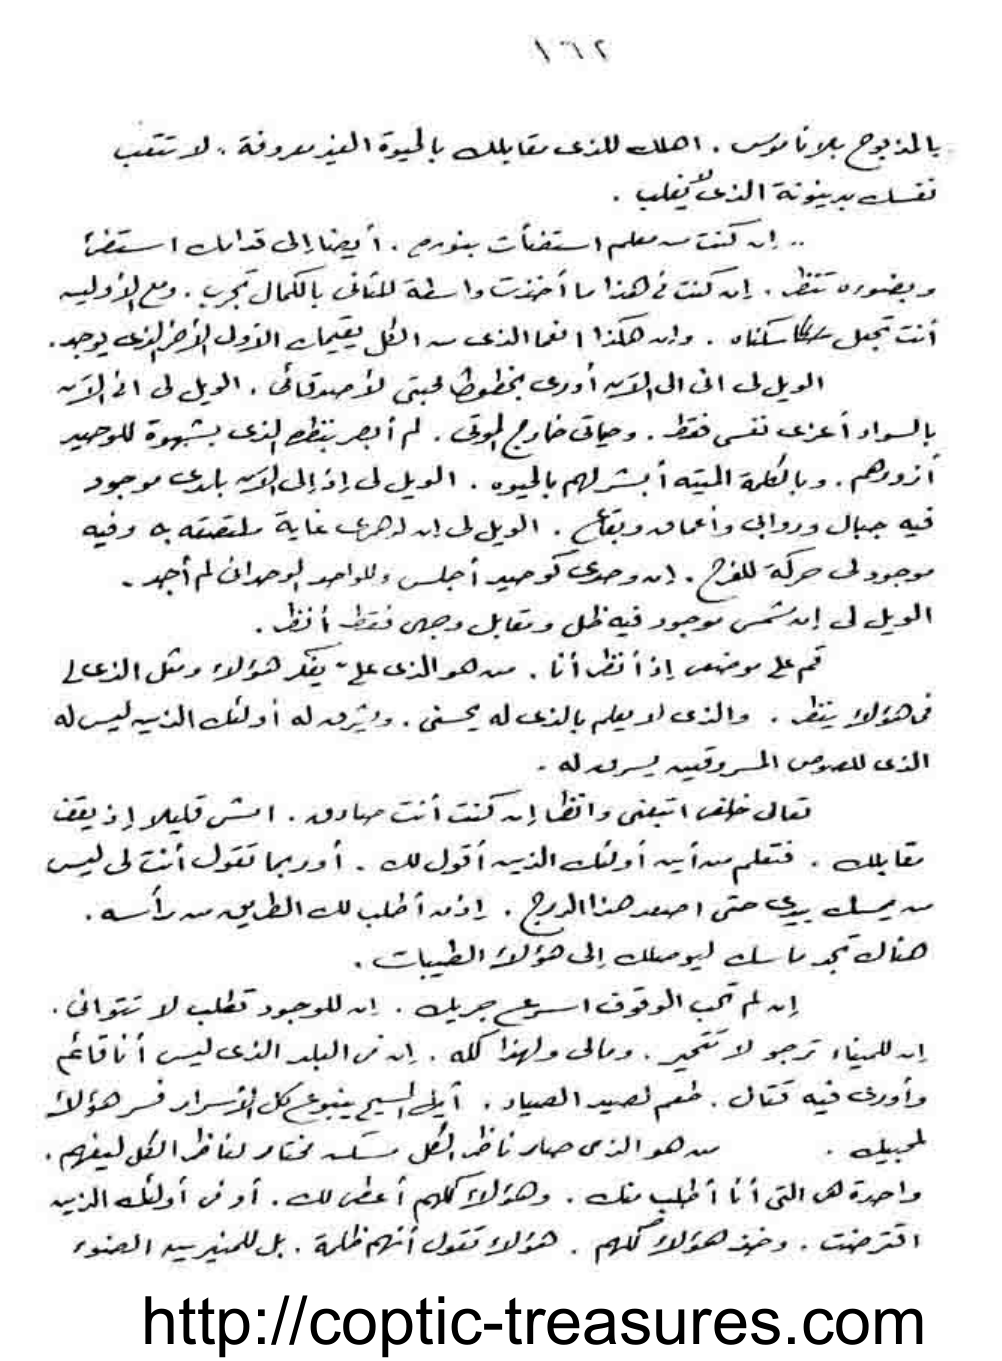 ١٦٢
بالمذبوح بلا ناموس . اهلك للذى مقابلك بالحيوة الغير معروفة . لا تتعب
نفسك بدينونة الذى لا يغلب .
.. إن كنت من معلم استضأت بنوره . أيضا إلى قدامك استضئ
وبضوءه تنظر . إن كنت فى هذا ما أخذت واسطة للثانى بالكمال تجرب . ومع الأولين
أنت تجعل سكناه . وإن هكذا انما الذى من الكل يقيمك الأول الأخر الذى يوجد .
الويل لى انى الى الآن أورى بخطوط محبتى لأصدقائى . الويل لى انى الآن
بالسواد أعزى نفسى فقط . وحياتى خارج الموتى . لم أبصر بنظر الذى بشهوة للوحيد
أزورهم . وبالكلمة الميته أبشر لهم بالحيوه . الويل لى إذ إلى الآن بلدى موجود
فيه جبال وروابى وأعماق وبقاع . الويل لى ان لدهرى غاية ملتصقه به وفيه
موجود لى حركة للفرح . إن وحدى كوحيد أجلس وللواحد الوحدانى لم أجد .
الويل لى إن شمس موجود فيه ظل ومقابل وجهى فقط أنظر .
قم على موضعى إذ أنظر أنا . من هو الذى علىّ يفكر هؤلاء ومثل الذى لى
فى هؤلاء ينظر . والذى لا يعلم بالذى له يحسنى . ويسرق له أولئك الذين ليس له
الذى للصوص المسروقين يسرق له .
تعالى خلفى اتبعنى وانظر إن كنت أنت صادق . امش قليلا إذ يقف
مقابلك . فتعلم من أين أولئك الذين أقول لك . أو ربما تقول أنت لى ليس
من يمسك بيدى حتى اصعد هذا الدرج . إذن أطلب لك الطريق من رأسه .
هناك تجد ماسك ليوصلك إلى هؤلاء الطيبات .
إن لم تحب الوقوف اسرع جريك . ان للوجود تطلب لا تتوانى .
إن للميناء ترجو لا تتحير . ومالى ولهذا كله . ان فى البلد الذى ليس أنا قائم
وأورى فيه قتال . طعم لصيد الصياد . أيها المسيح ينبوع كل الأسرار فسر هؤلاء
لمحبيك . من هو الذى صار ناظر الكل مسكن مختار لناظر الكل ليفهم .
واحدة هى التى أنا أطلب منك . وهؤلاء كلهم أعطى لك . أو فى أولئك الذين
اقترضت . وخذ هؤلاء كلهم . هؤلاء تقول أنهم ظلمة . بل للمنيرين الضوء
http://coptic-treasures.com